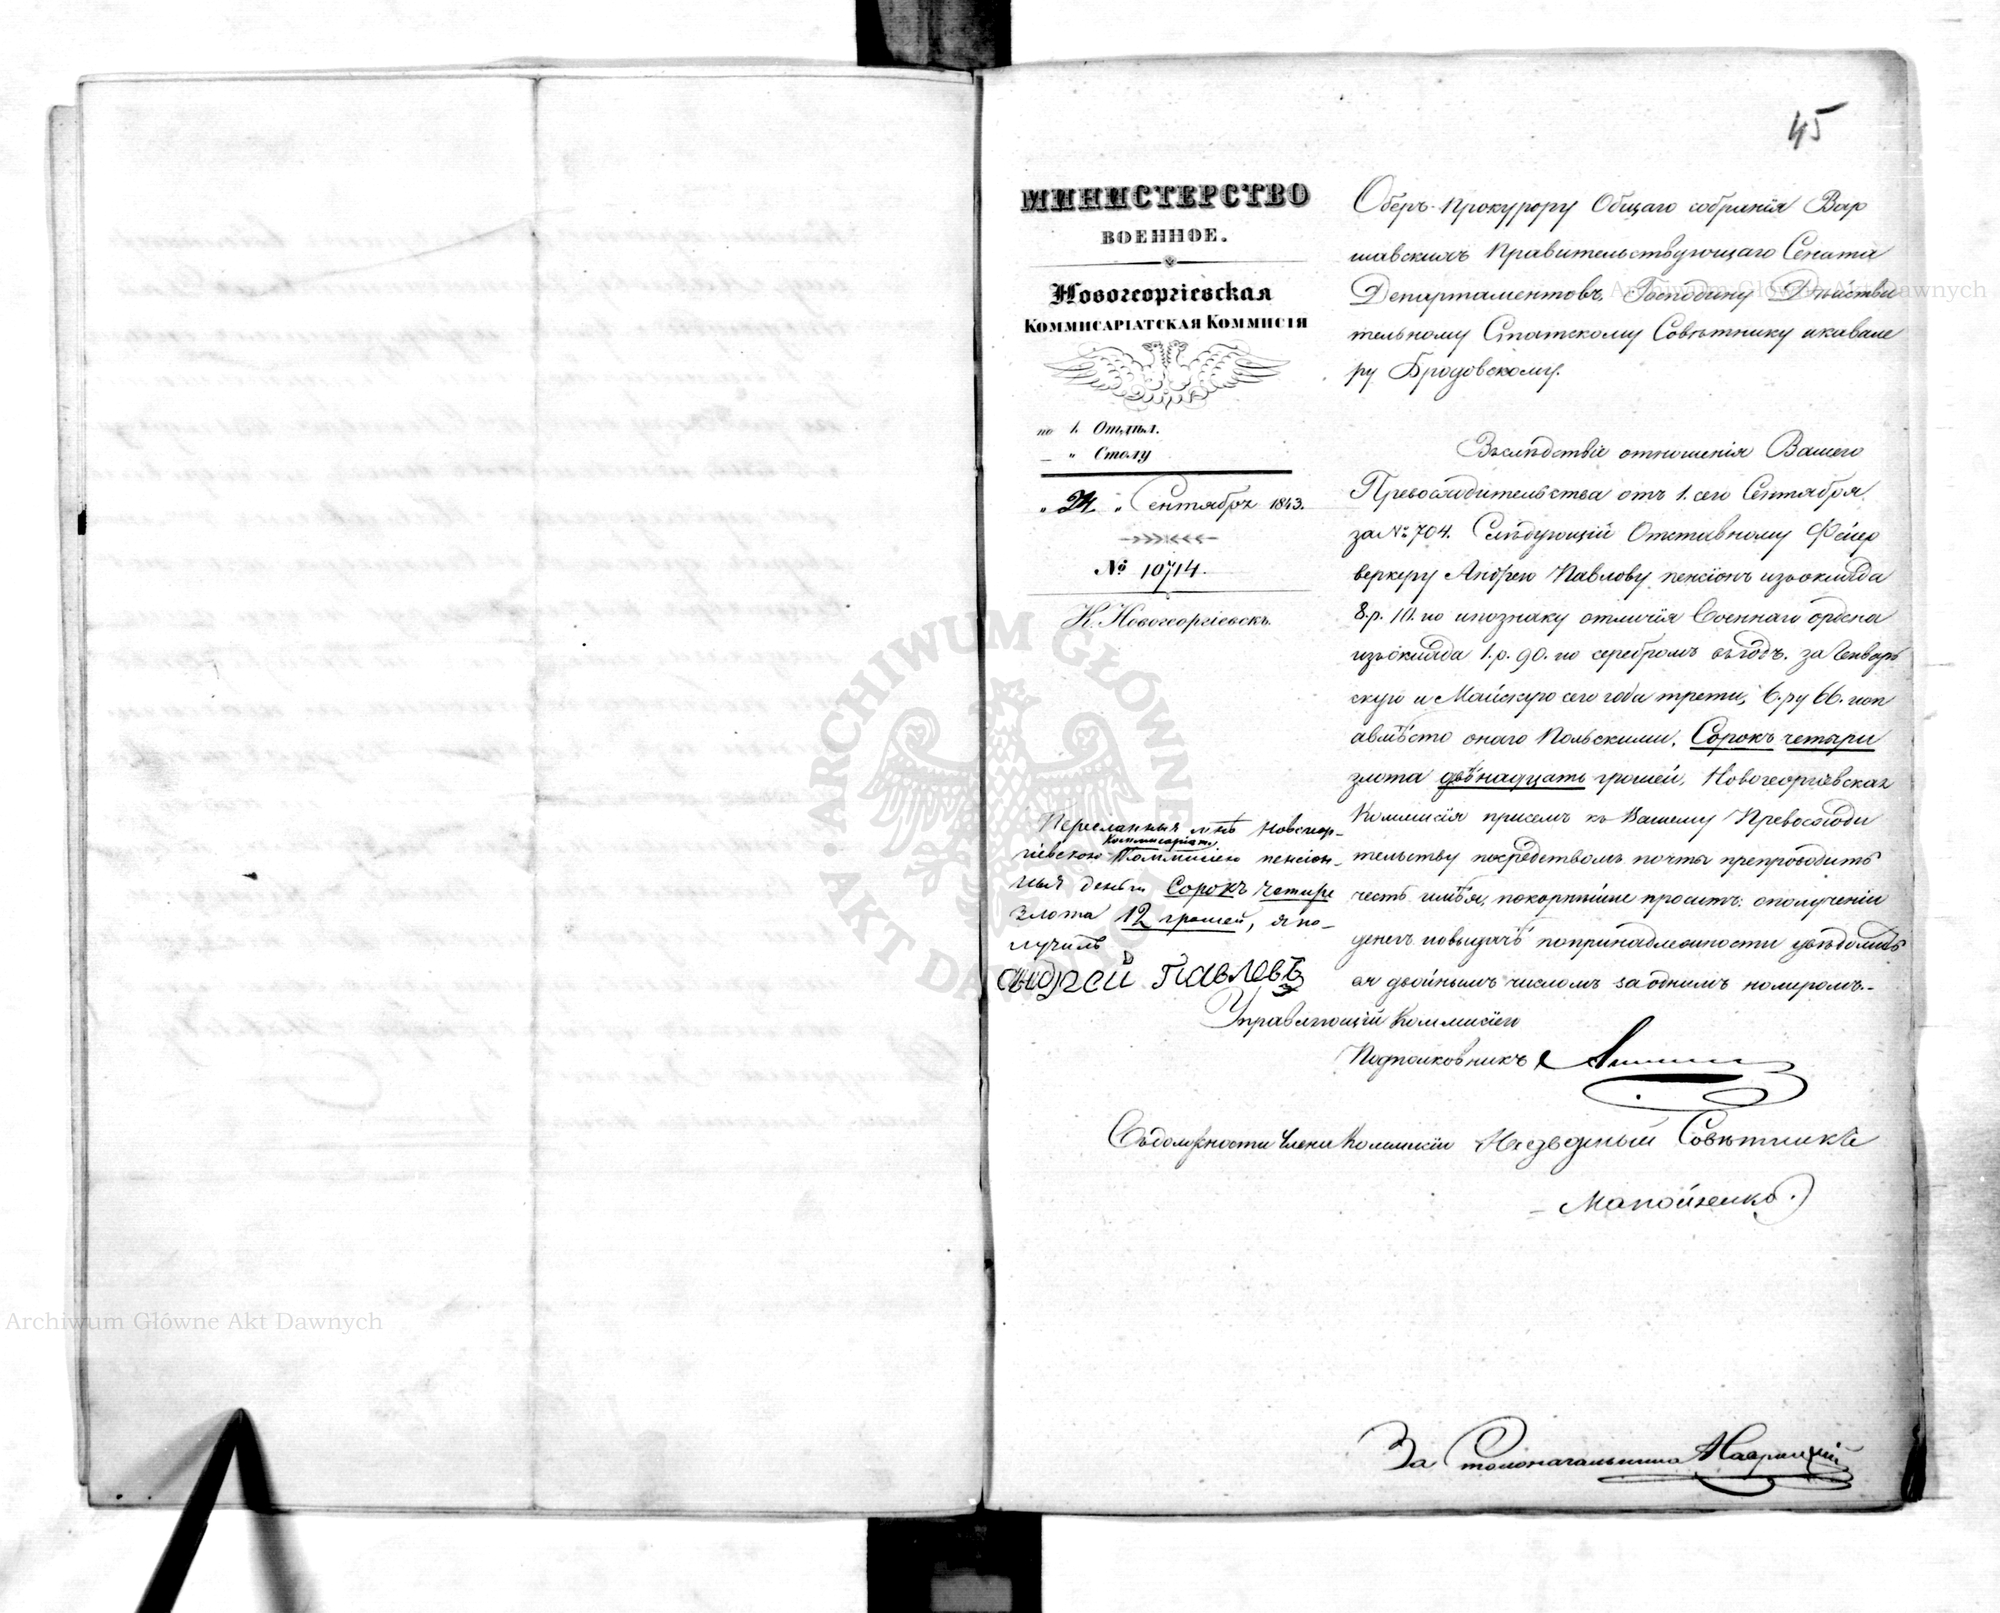 45
МИНИСТЕРСТВО
ВОЕННОЕ.
Новогеоргіевская
Коммисаріатская Коммисія
по 1. Отдѣл.
— " Столу
" 24 " Сентября 1843.
№ 10714.
К. Новогеоргіевскъ.
Оберъ-Прокурору Общаго собранія Вар
шавскихъ Правительствующаго Сената
Департаментовъ, Господину Дѣйстви
тельному Статскому Совѣтнику и кавале
ру Бродовскому.
Вслѣдствіе отношенія Вашего
Превосходительства отъ 1. сего Сентября
за № 704. Слѣдующій Отставному Фейер
веркеру Андрею Павлову пенсіонъ изъ оклада
8. р. 10. ко и по знаку отличія Военнаго ордена
изъ оклада 1. р. 90. ко серебромъ въ годъ. за Генварь
скую и Майскую сего года трети, 6. ру 66. коп
а вмѣсто онаго Польскими, Сорокъ четыри
злота двѣнадцать грошей, Новогеоргіевская
Коммисія присемъ къ Вашему Превосходи
тельству посредствомъ почты препроводить
честь имѣя, покорнѣйше проситъ: о полученіи
денегъ и о выдачѣ по принадлежности увѣдомить
ея двойнымъ числомъ за однимъ номеромъ.-
Пересланныя мнѣ Новогеор-
гіевскою Коммисаріат. Коммисіею пенсіон-
ныя деньги Сорокъ четыре
злота 12 грошей, я по-
лучилъ
Андрей Павловъ
Управляющій Коммисіею
Подполковникъ
Въ должности Члена Коммисіи Надворный Совѣтникъ
За Столоначальника
Archiwum Główne Akt Dawnych
Archiwum Główne Akt Dawnych
ARCHIWUM GŁÓWNE AKT DAWNYCH